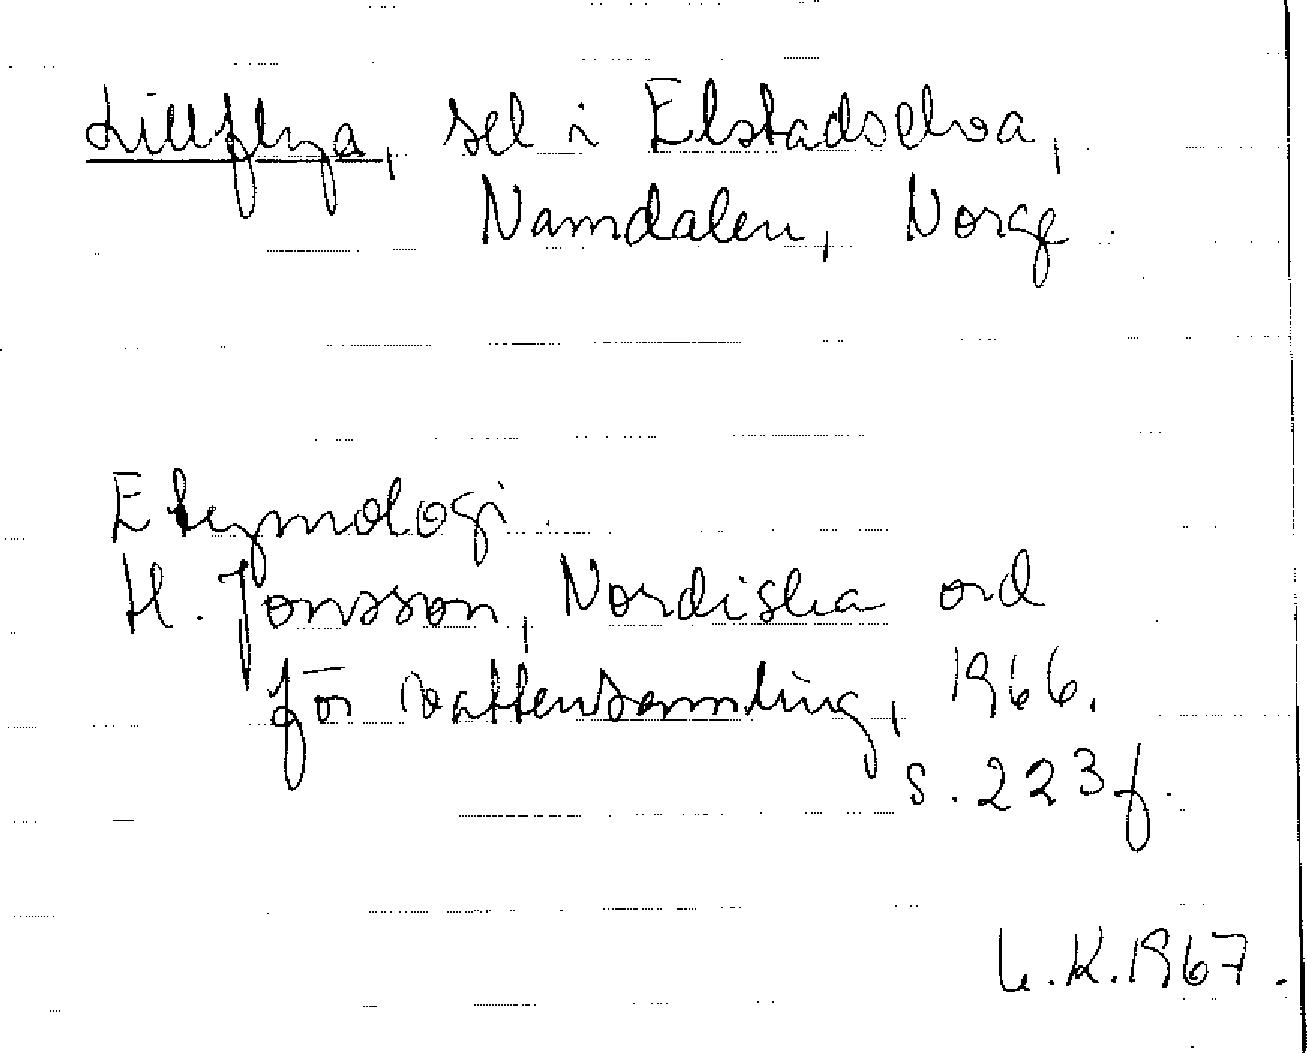 Lillflya, sel i Elstadselva,
Namdalen, Norge.
Etymologi.
H. Jonsson, Nordiska ord
för vattensamling, 1966.
s. 223 f.
L.K. 1967.